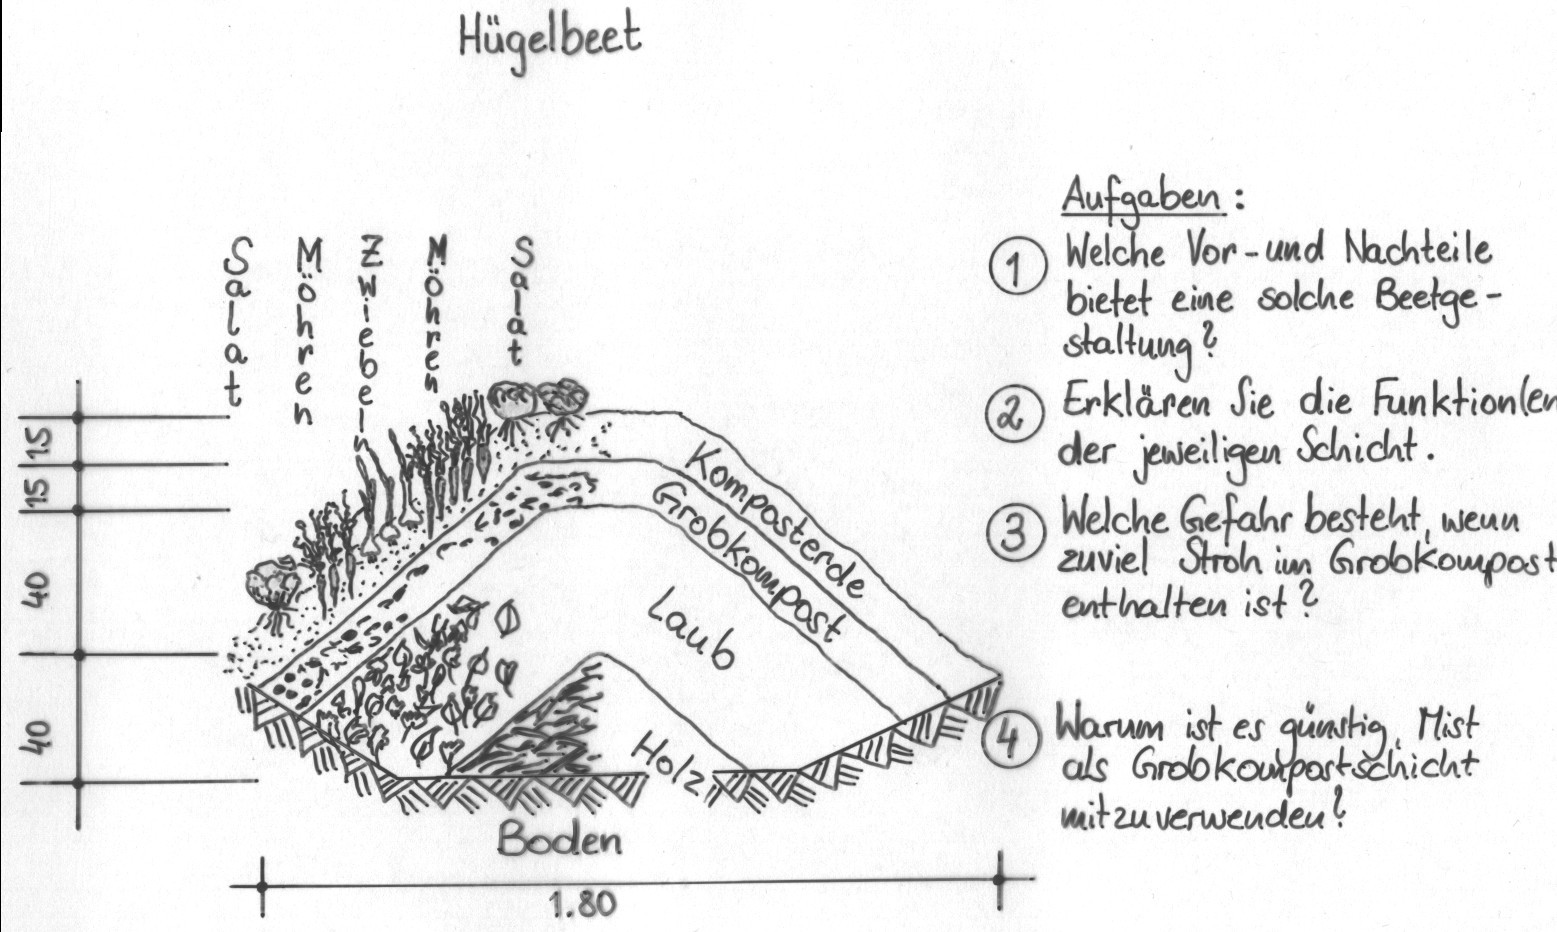 Hügelbeet
Salat
Möhren
Zwiebeln
Möhren
Salat
15
15
40
40
Komposterde
Grobkompost
Laub
Holz
Boden
1.80
Aufgaben:
1 Welche Vor- und Nachteile
bietet eine solche Beetge-
staltung?
2 Erklären Sie die Funktion(en
der jeweiligen Schicht.
3 Welche Gefahr besteht, wenn
zuviel Stroh im Grobkompost
enthalten ist?
4 Warum ist es günstig, Mist
als Grobkompostschicht
mitzuverwenden?